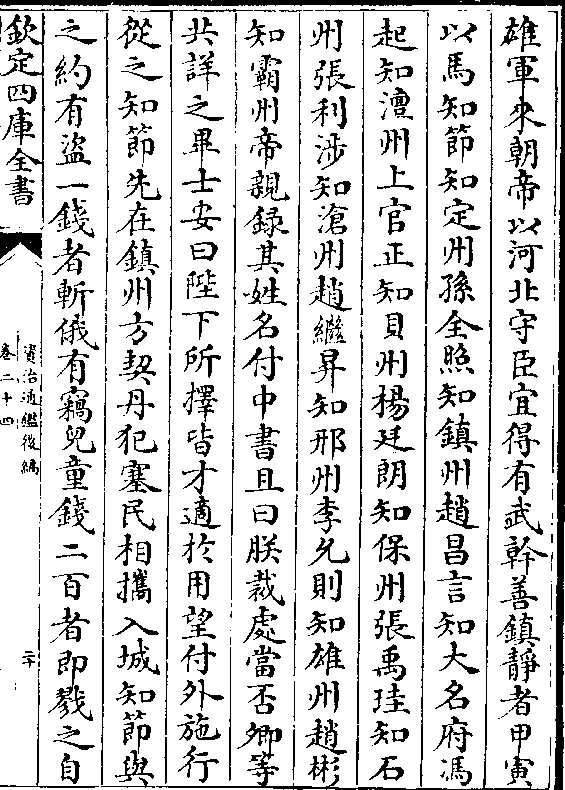 雄軍來朝帝以河北守臣宜得有武幹善鎮靜者甲寅
以馬知節知定州孫全照知鎮州趙昌言知大名府馮
起知澶州上官正知貝州楊廷朗知保州張禹珪知石
州張利涉知滄州趙繼昇知邢州李允則知雄州趙彬
知霸州帝親録其姓名付中書且曰朕裁處當否卿等
共詳之畢士安曰陛下所擇皆才適於用望付外施行
從之知節先在鎮州方契丹犯塞民相攜入城知節與
之約有盜一錢者斬俄有竊兒童錢二百者即戮之自
欽定四庫全書
資治通鑑後編
卷二十四
二十